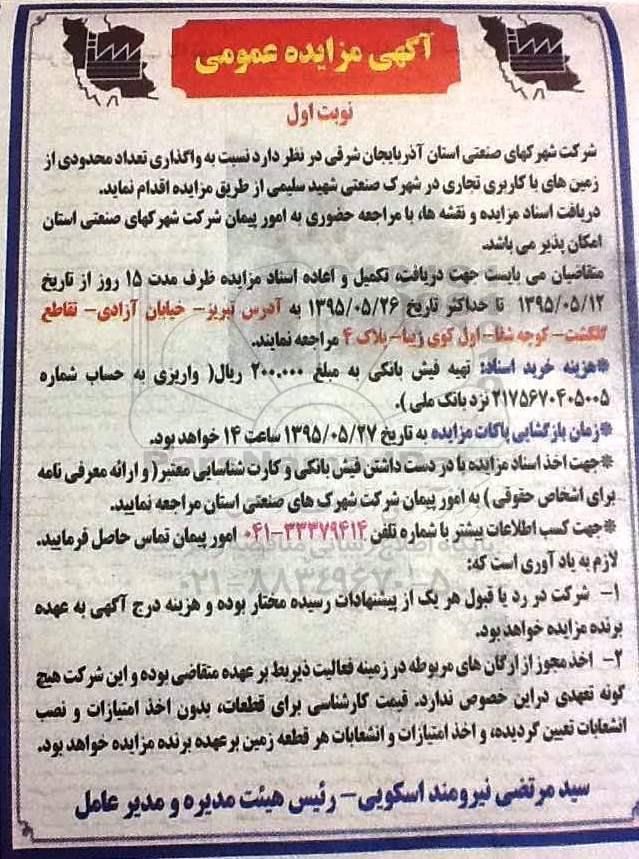 آگهی مزایده عمومی
نوبت اول
شرکت شهرکهای صنعتی استان آذربایجان شرقی در نظر دارد نسبت به واگذاری تعداد محدودی از
زمین های با کاربری تجاری در شهرک صنعتی شهید سلیمی از طریق مزایده اقدام نماید.
دریافت اسناد مزایده و نقشه ها، با مراجعه حضوری به امور پیمان شرکت شهرکهای صنعتی استان
امکان پذیر می باشد.
متقاضیان می بایست جهت دریافت، تکمیل و اعاده اسناد مزایده ظرف مدت ۱۵ روز از تاریخ
۱۳۹۵/۰۵/۱۲ تا حداکثر تاریخ ۱۳۹۵/۰۵/۲۶ به آدرس تبریز- خیابان آزادی- تقاطع
گلگشت- کوچه شفا- اول کوی زیبا- پلاک ۴ مراجعه نمایند.
*هزینه خرید اسناد: تهیه فیش بانکی به مبلغ ۲۰۰.۰۰۰ ریال( واریزی به حساب شماره
۲۱۷۵۶۷۰۴۰۵۰۰۵ نزد بانک ملی).
*زمان بازگشایی پاکات مزایده به تاریخ ۱۳۹۵/۰۵/۲۷ ساعت ۱۴ خواهد بود.
*جهت اخذ اسناد مزایده با در دست داشتن فیش بانکی و کارت شناسایی معتبر( و ارائه معرفی نامه
برای اشخاص حقوقی) به امور پیمان شرکت شهرک های صنعتی استان مراجعه نمایید.
*جهت کسب اطلاعات بیشتر با شماره تلفن ۳۳۳۷۹۴۱۴-۰۴۱ امور پیمان تماس حاصل فرمایید.
لازم به یاد آوری است که:
۱- شرکت در رد یا قبول هر یک از پیشنهادات رسیده مختار بوده و هزینه درج آگهی به عهده
برنده مزایده خواهد بود.
۲- اخذ مجوز از ارگان های مربوطه در زمینه فعالیت ذیربط بر عهده متقاضی بوده و این شرکت هیچ
گونه تعهدی دراین خصوص ندارد. قیمت کارشناسی برای قطعات، بدون اخذ امتیازات و نصب
انشعابات تعیین گردیده، و اخذ امتیازات و انشعابات هر قطعه زمین برعهده برنده مزایده خواهد بود.
سید مرتضی نیرومند اسکویی- رئیس هیئت مدیره و مدیر عامل
۰۲۱-۸۸۳۴۹۶۷۰-۵